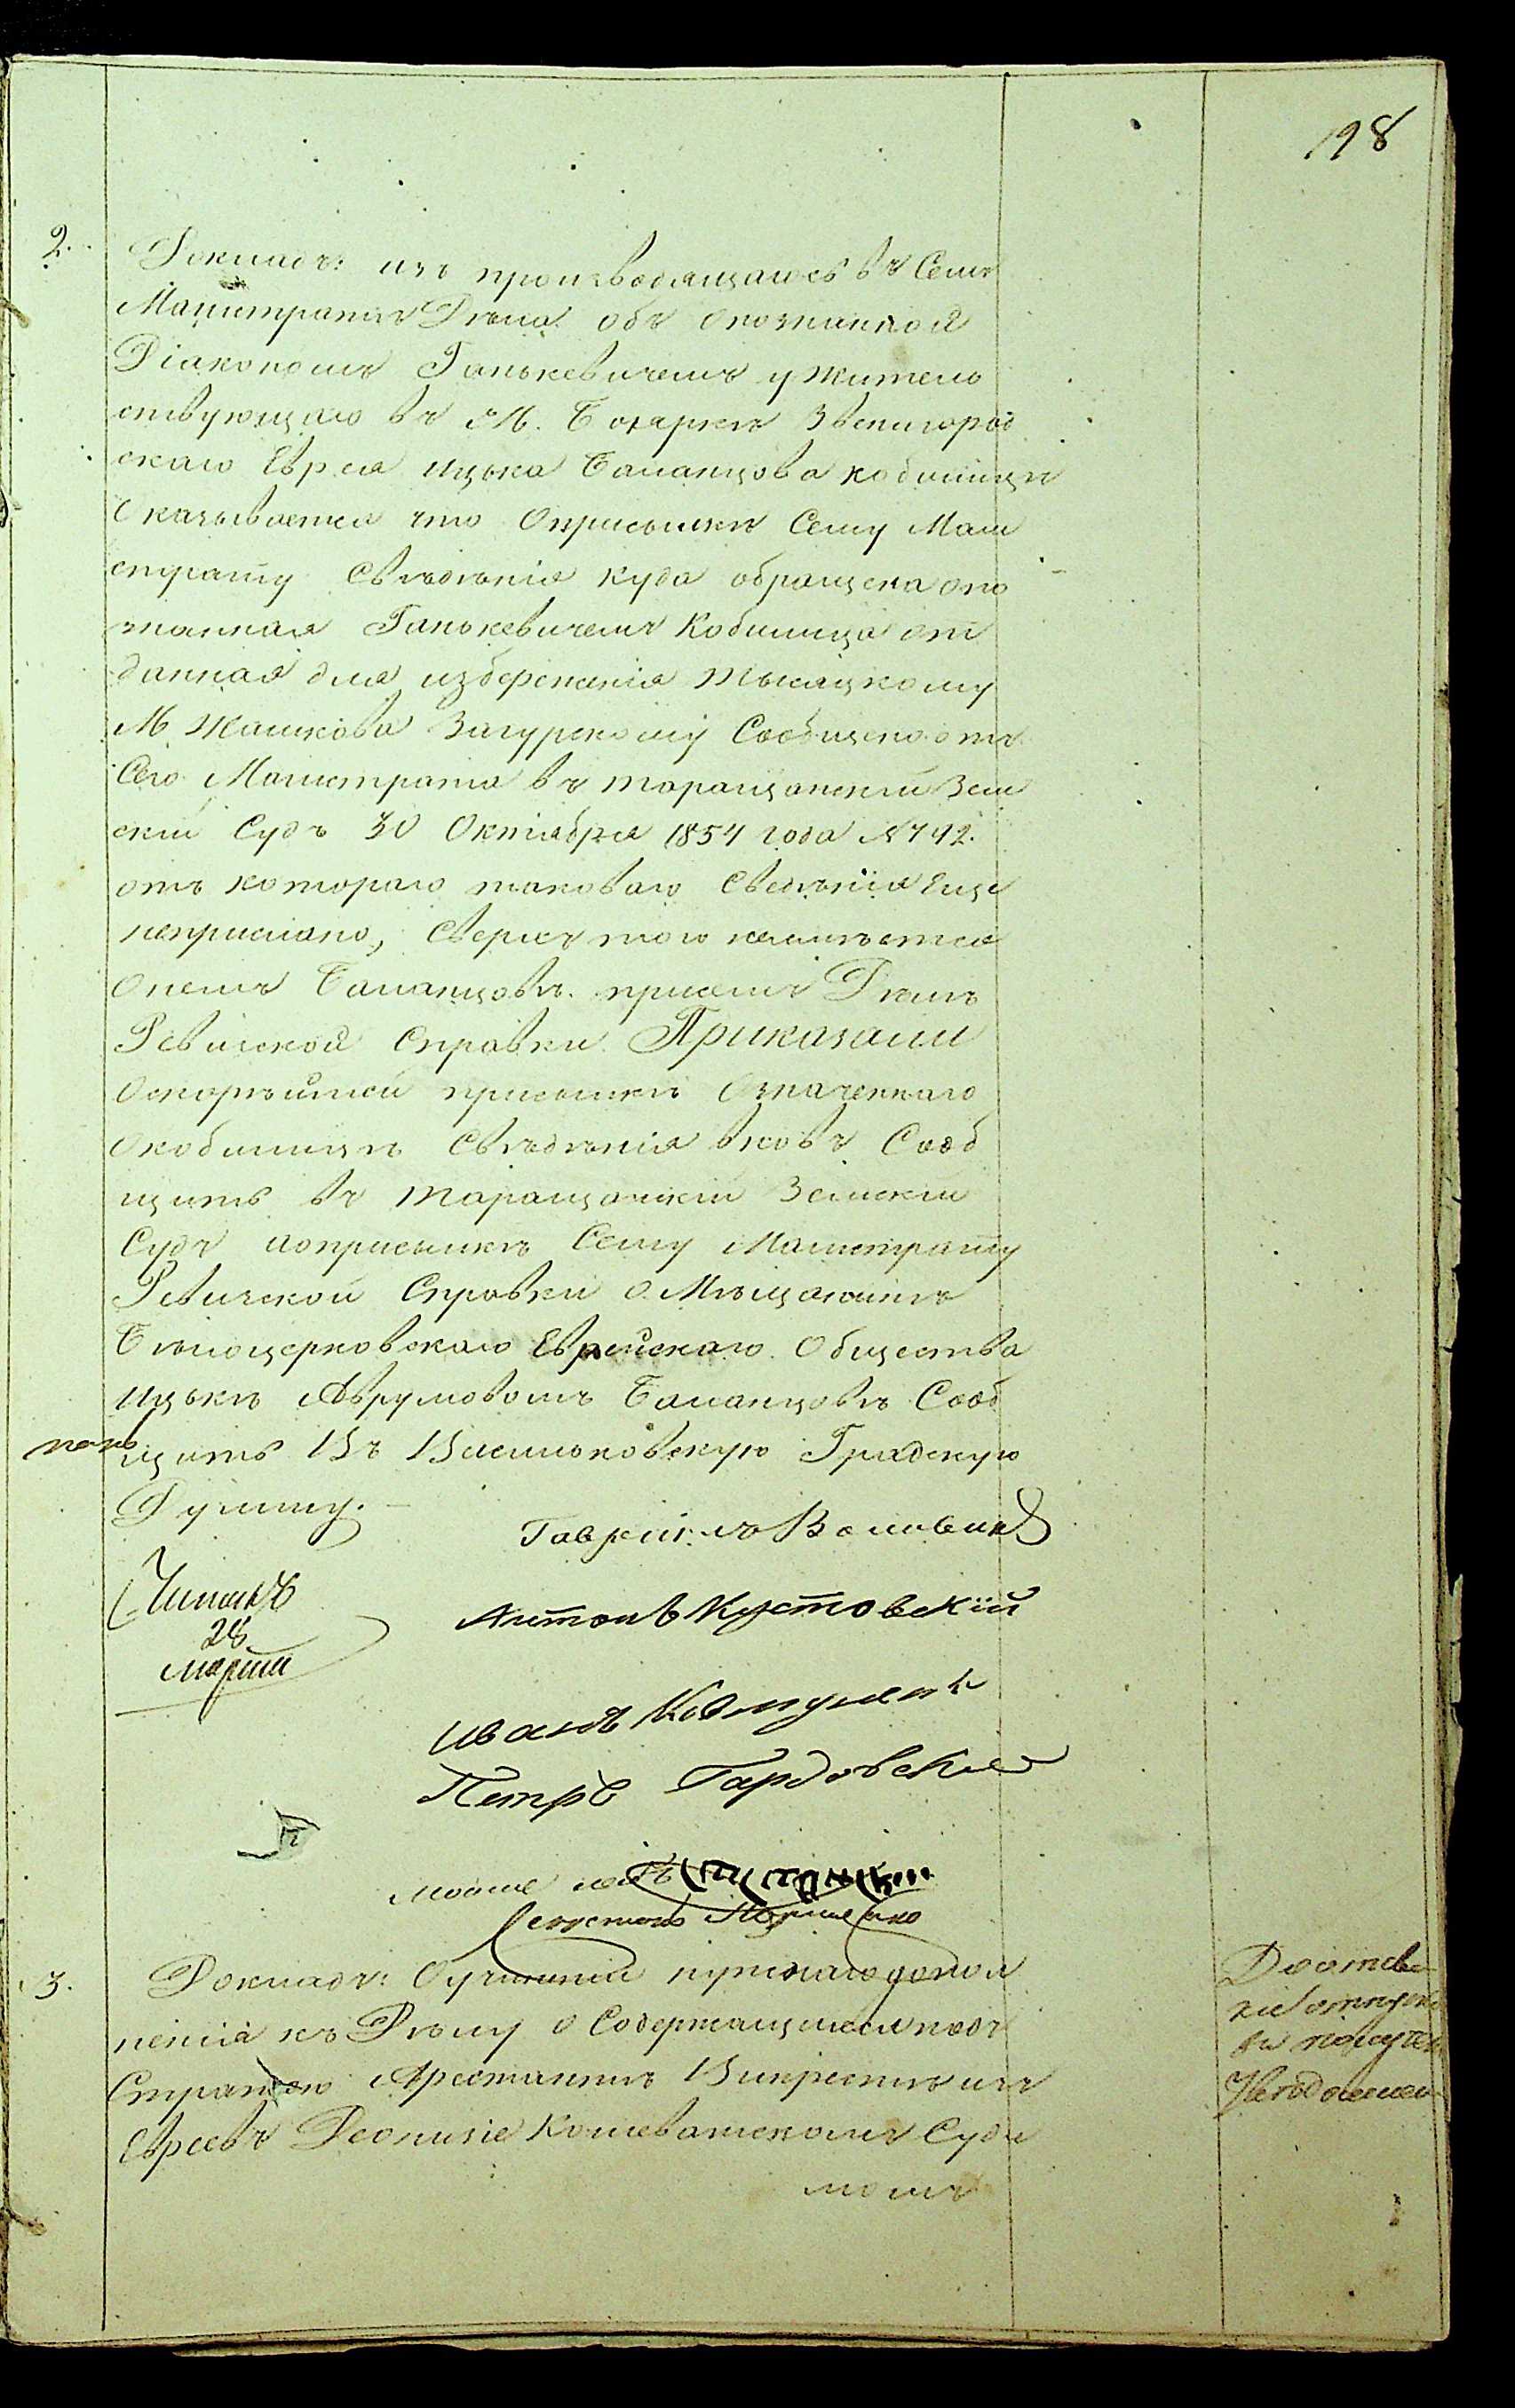 198
2.
Докладъ: изъ производящагося въ Семъ
Магистратѣ Дѣла объ опознанной
Діакономъ Ганькевичемъ у житель
ствующаго въ М. Боярке Звенигород
скаго Еврея Ицька Баланцова кобылицы
Оказывается что Оприсылкѣ Сему Маги
страту Свѣдѣнія куда обращена опо
знанная Ганькевичемъ Кобылица от
данная для избереженія тысяцкому
М Жашкова Загурскому Сообщено отъ
Сего Магистрата въ таращанскій Зем
скій Судъ 30 Октября 1854 года №742.
отъ котораго таковаго Сведѣнія еще
неприслано, Сверхъ того неимѣется
Онемъ Баланцовѣ присемъ Дѣлѣ
Ревизской Справки. Приказали
Оскорѣйшей присылкѣ Означеннаго
Окобылицѣ Свѣдѣнія вновъ Сооб
щить въ таращанскій Земскій
Судъ аоприсылкѣ Сему Магистрату
Ревизской Справки О Мѣщанинѣ
Бѣлоцерковскаго Еврейскаго Общества
Ицькѣ Аврумовомъ Баланцовѣ Сооб
щить Въ Васильковскую Градскую
Думу.
Гавріилъ Воловик
Читалъ
28
марта
Антонъ Кустовскій
Иванъ
Петръ Гардовскій
Мошке
3.
Докладъ: Оучиненіи нужнаго допол
ненія къ Дѣлу О Содержащемся подъ
Стражею Арестантѣ Выкрестѣ изъ
Евреевъ Деонизіе Кошеватскомъ Суди
момъ